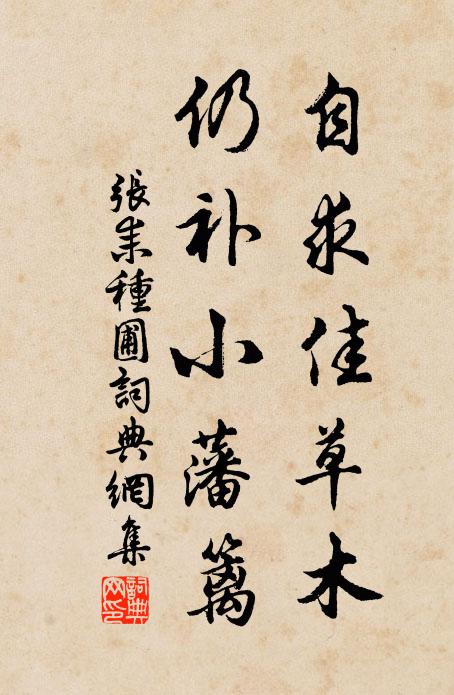 自求佳草木
仍补小藩篱
張耒種圃詞典網集
詞典网印